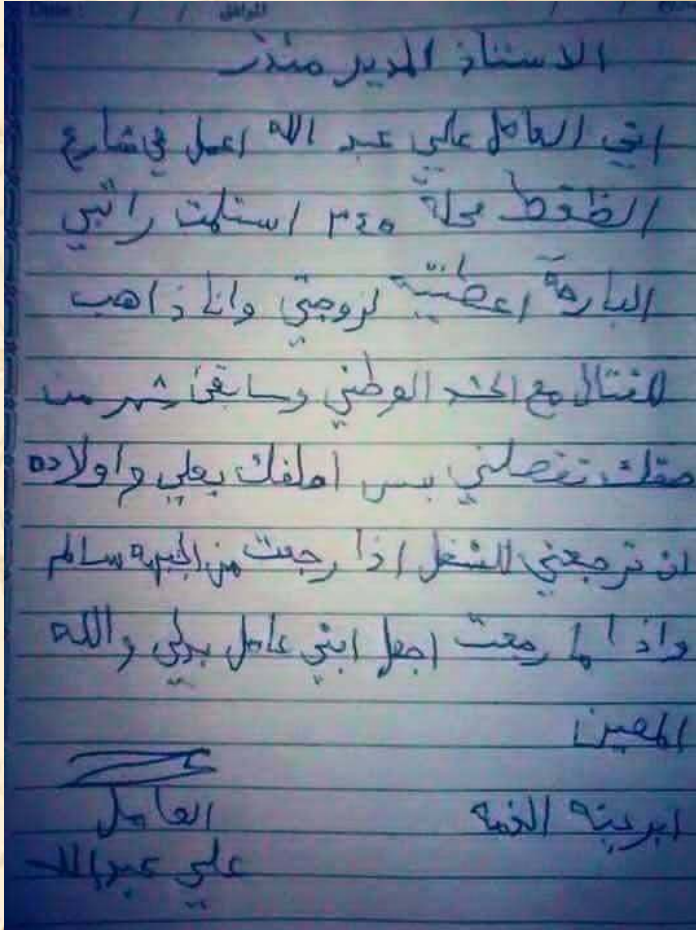 الاستاذ المدير منذر
اني العامل علي عبد الله اعمل في شارع
الضغط محلة ٣٤٥ استلمت راتبي
البارحة اعطيته لزوجتي وانا ذاهب
للقتال مع الحشد الوطني وسابقى شهر من
حقك تفصلني بس احلفك بعلي واولاده
ان ترجعني للشغل اذا رجعت من الجبهه سالم
واذا ما رجعت اجعل ابني عامل بدلي والله
المعين
ابريئه الذمه
العامل
علي عبدالله